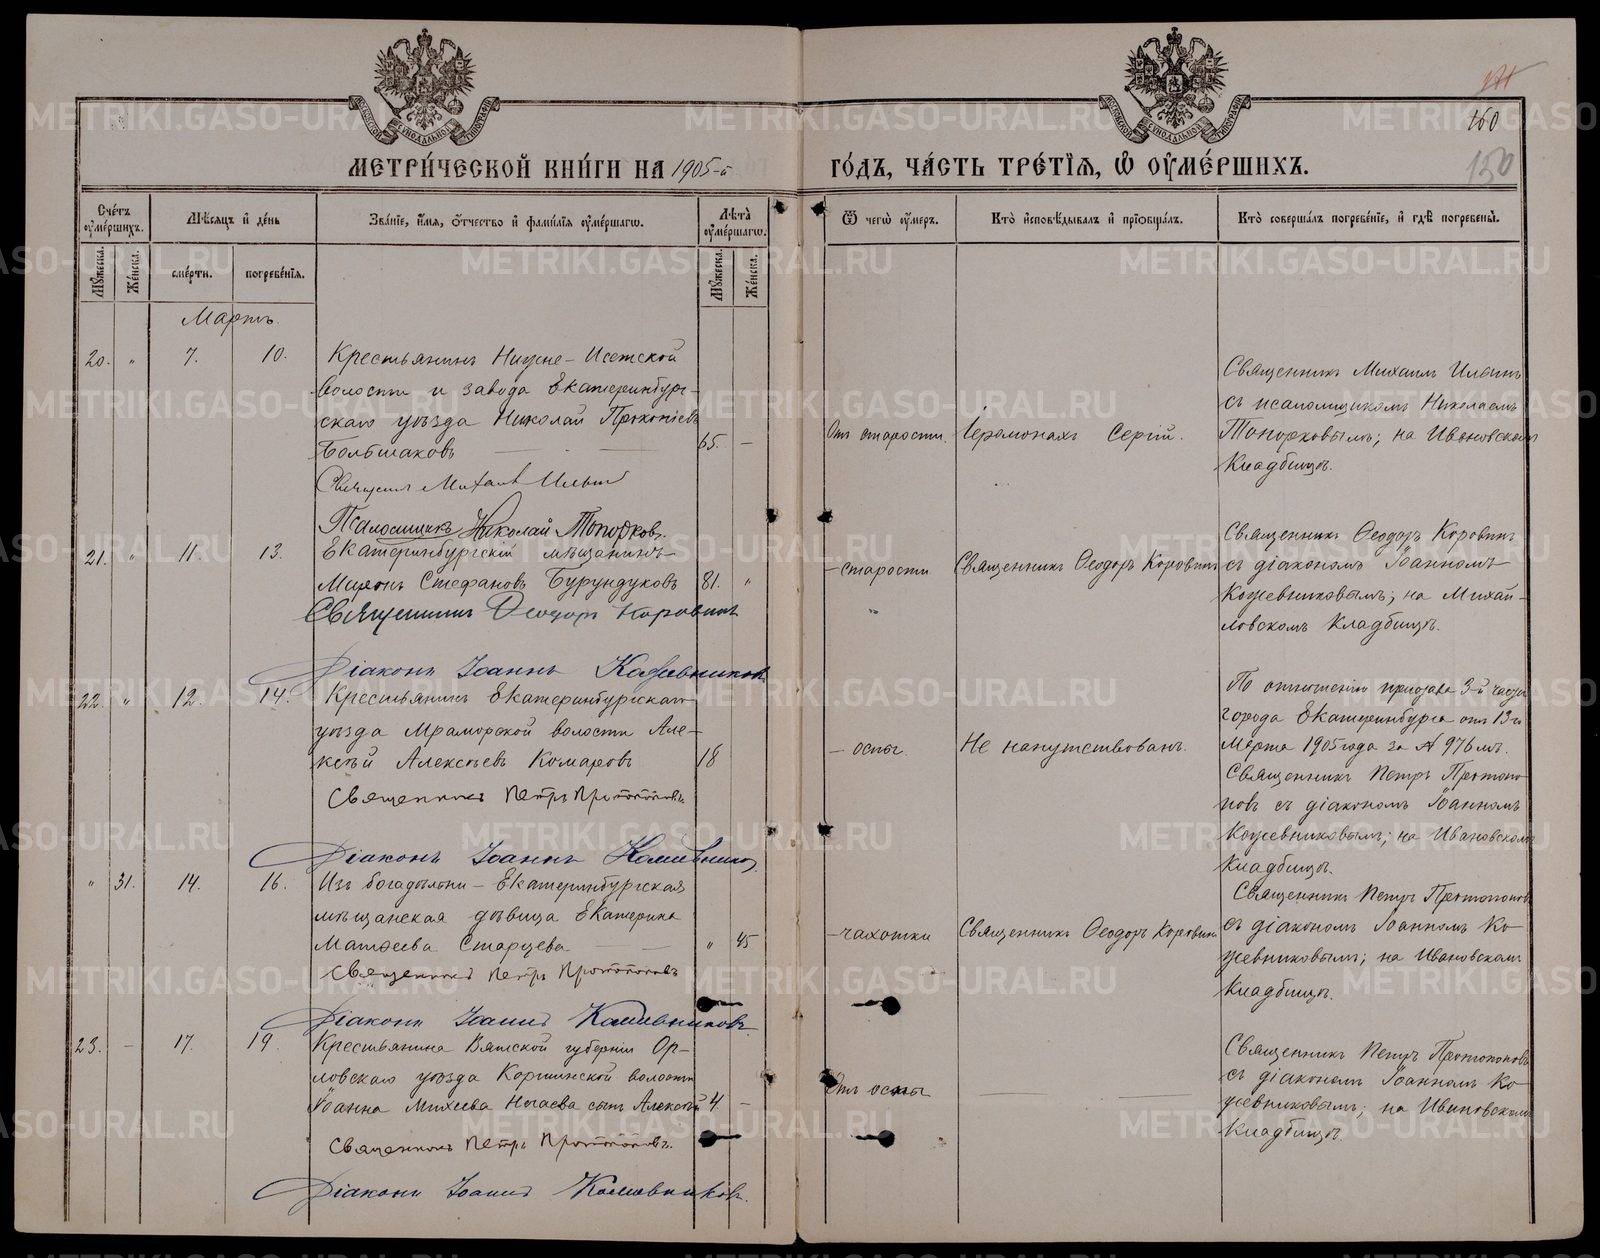 МЕТРИЧЕСКОЙ КНИГИ НА 1905-й
ГОДЪ, ЧАСТЬ ТРЕТІЯ, Ѡ ОУМЕРШИХЪ.
160
150
Счетъ оумершихъ.
Мѣсяцъ и день
Званіе, имя, отчество и фамилія оумершагѡ.
Лѣта оумершагѡ.
Ѿ чегѡ оумеръ.
Кто исповѣдывалъ и пріобщалъ.
Кто совершалъ погребеніе, и гдѣ погребены.
Мужеска.
Женска.
смерти.
погребенія.
Мужеска.
Женска.
Мартъ.
20. " 7. 10.
Крестьянинъ Нижне-Исетской
волости и завода Екатеринбург-
скаго уѣзда Николай Прокопіевъ
Большаковъ
65. -
Отъ старости.
Іеромонахъ Сергій.
Священникъ Михаилъ Ильинъ
съ псаломщикомъ Николаемъ
Топорковымъ; на Ивановскомъ
Кладбищѣ.
Священник Михаил Ильин
Псаломщикъ Николай Топорков.
21. " 11. 13.
Екатеринбургскій мѣщанинъ
Миронъ Стефановъ Бурундуковъ
81. "
- старости
"
Священникъ Ѳеодоръ Коровинъ
Священникъ Ѳеодоръ Коровинъ
съ діакономъ Іоанномъ
Кожевниковымъ; на Михай-
ловскомъ Кладбищѣ.
Священникъ Ѳеодоръ Коровинъ
Діаконъ Іоаннъ Кожевников
22. " 12. 14.
Крестьянинъ Екатеринбургскаго
уѣзда Мраморской волости Але-
ксѣй Алексѣевъ Комаровъ
18
- оспы.
Не напутствованъ.
По отношенію пристава 3-й части
города Екатеринбурга отъ 13-го
Марта 1905 года за № 976 мъ.
Священникъ Петръ Протопо-
повъ съ діакономъ Іоанномъ
Кожевниковымъ; на Ивановскомъ
Кладбищѣ.
Священникъ Петръ Протопоповъ.
Діаконъ Іоаннъ Кожевников
" 31. 14. 16.
Изъ богадѣльни - Екатеринбургская
мѣщанская дѣвица Екатерина
Матѳеева Старцева
" 45
- чахотки
Священникъ Ѳеодоръ Коровинъ
Священникъ Петръ Протопоповъ
съ діакономъ Іоанномъ Ко-
жевниковымъ; на Ивановскомъ
Кладбищѣ.
Священникъ Петръ Протопоповъ
Діаконъ Іоаннъ Кожевниковъ
23. - 17. 19.
Крестьянина Вятской губерніи Ор-
ловскаго уѣзда Коршинской волости
Іоанна Михеева Ногаева сынъ Алексѣй
4. -
Отъ оспы
Священникъ Петръ Протопоповъ
съ діакономъ Іоанномъ Ко-
жевниковымъ; на Ивановскомъ
Кладбищѣ.
Священникъ Петръ Протопоповъ.
Діаконъ Іоаннъ Кожевниковъ.
METRIKI.GASO-URAL.RU